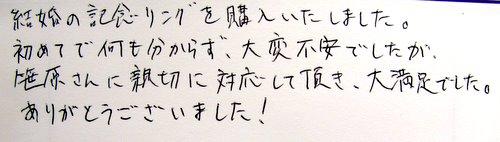 結婚の記念リングを購入いたしました。
初めてで何も分からず、大変不安でしたが、
笹原さんに親切に対応して頂き、大満足でした。
ありがとうございました!